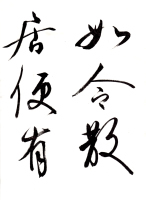 如今散
居便有